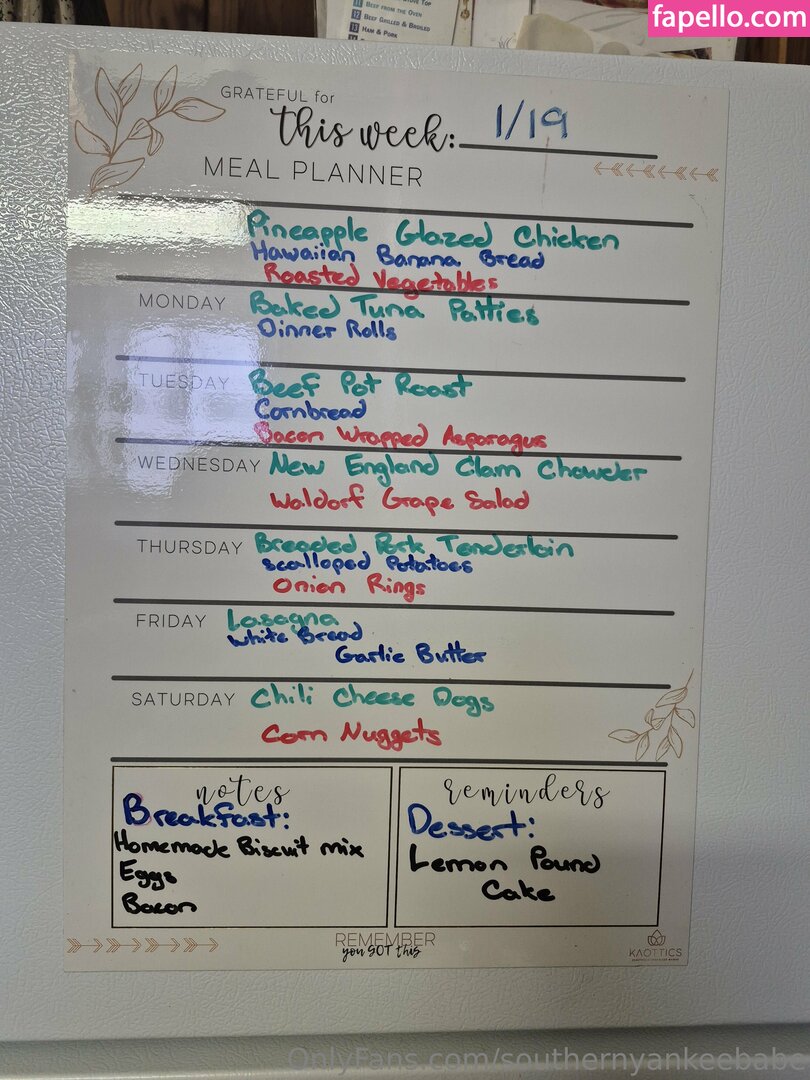 fapello.com
11 BEEF FROM THE OVEN
12 BEEF GRILLED & BROILED
13 HAM & PORK
GRATEFUL for
this week: 1/19
MEAL PLANNER
Pineapple Glazed Chicken
Hawaiian Banana Bread
Roasted Vegetables
MONDAY Baked Tuna Patties
Dinner Rolls
TUESDAY Beef Pot Roast
Cornbread
Bacon Wrapped Asparagus
WEDNESDAY New England Clam Chowder
Waldorf Grape Salad
THURSDAY Breaded Pork Tenderloin
scalloped Potatoes
Onion Rings
FRIDAY Lasagna
White Bread
Garlic Butter
SATURDAY Chili Cheese Dogs
Corn Nuggets
notes
Breakfast:
Homemade Biscuit mix
Eggs
Bacon
reminders
Dessert:
Lemon Pound
Cake
REMEMBER
you GOT this
KAOTTICS
OnlyFans.com/southernyankeebabe